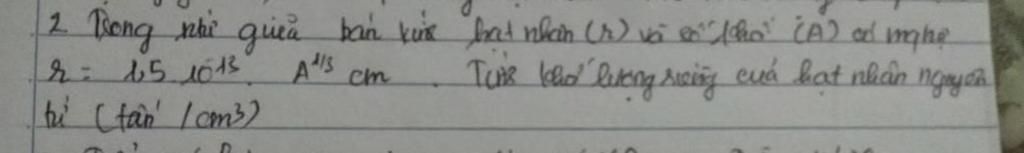 2 Trong nhi giữa bán kính hạt nhân (r) và số khối (A) có mghệ
r = 1,5 10^-13. A^1/3 cm. Tính khối lượng riêng cuả hạt nhân nguyên
tử (tấn / cm3)